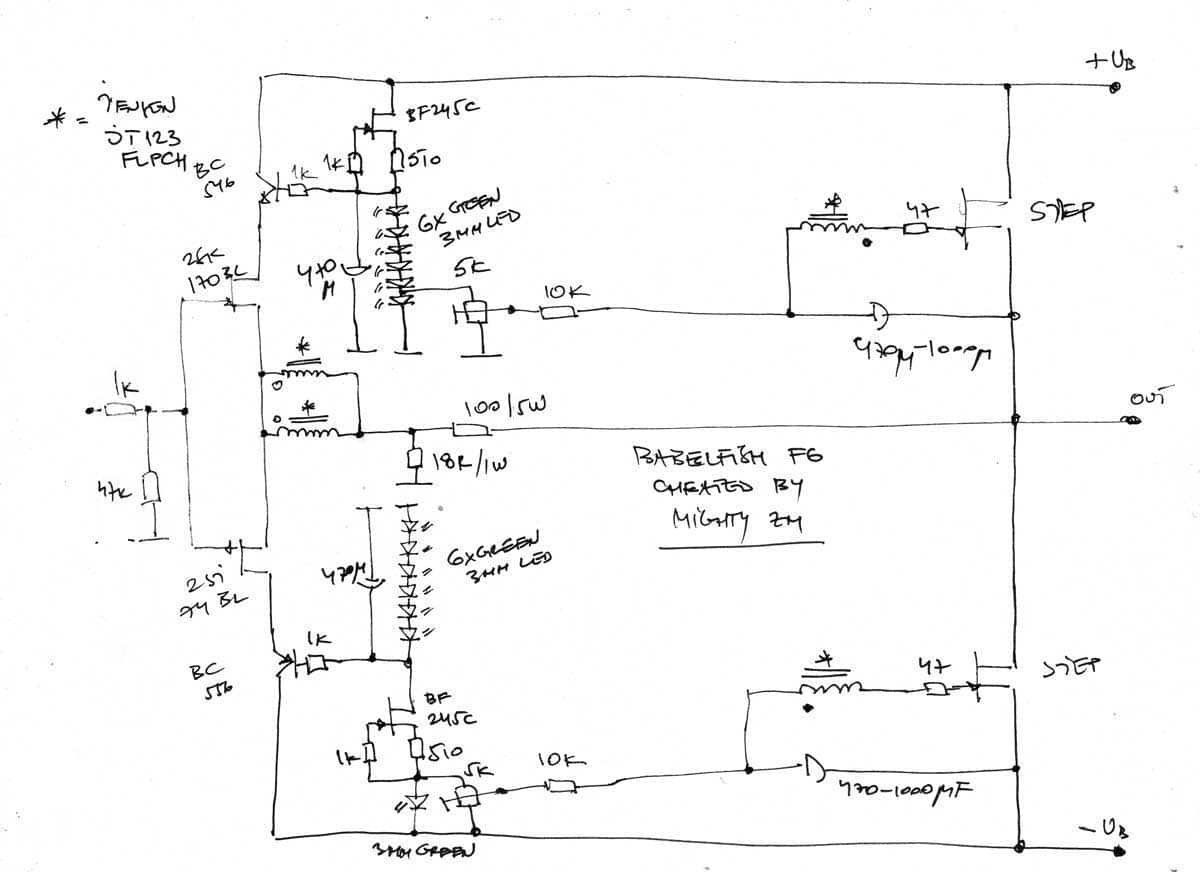 +UB
* = JENSEN
JT 123
FLPCH
BC
546
1K
1K
BF245C
510
6X GREEN
3MM LED
2SK
170BL
470
M
5K
10K
*
47
STEP
470µ-1000µ
1K
*
*
100/5W
OUT
47K
18R/1W
BABELFISH F6
CHEATED BY
MIGHTY ZM
2SJ
74 BL
470µ
6XGREEN
3MM LED
1K
BC
556
BF
245C
1K
510
5K
10K
*
47
STEP
470-1000µF
3MM GREEN
-UB